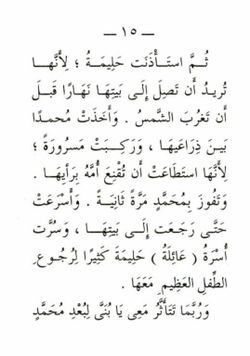 — ١٥ —
ثُمَّ اسْتَأْذَنَت حَلِيمَةُ ؛ لِأَنَّهَا
تُرِيدُ أَن تَصِلَ إِلَى بَيْتِهَا نَهَارًا قَبلَ
أَن تَغرُبَ الشَّمْسُ . وَأَخَذَتْ مُحمدًا
بَينَ ذِرَاعَيهَا ، وَرَكِبَتْ مَسرُورَةً ؛
لِأَنَّهَا اسْتَطَاعَتْ أَن تُقْنِعَ أُمَّهُ بِرَأيِهَا .
وَتَفُوزَ بِمُحَمَّدٍ مَرَّةً ثَانِيَةً . وَأَسْرَعَتْ
حَتَّى رَجَعَت إِلَى بَيْتِهَا ، وَسُرَّت
أُسْرَةُ ( عَائِلَةُ ) حَلِيمَةَ كَثِيرًا لِرُجُوعِ
الطِّفلِ العَظِيمِ مَعَهَا .
وَرُبَّمَا تَتَأَثَّرُ مَعِى يَا بُنَىَّ لِبُعْدِ مُحَمَّدٍ